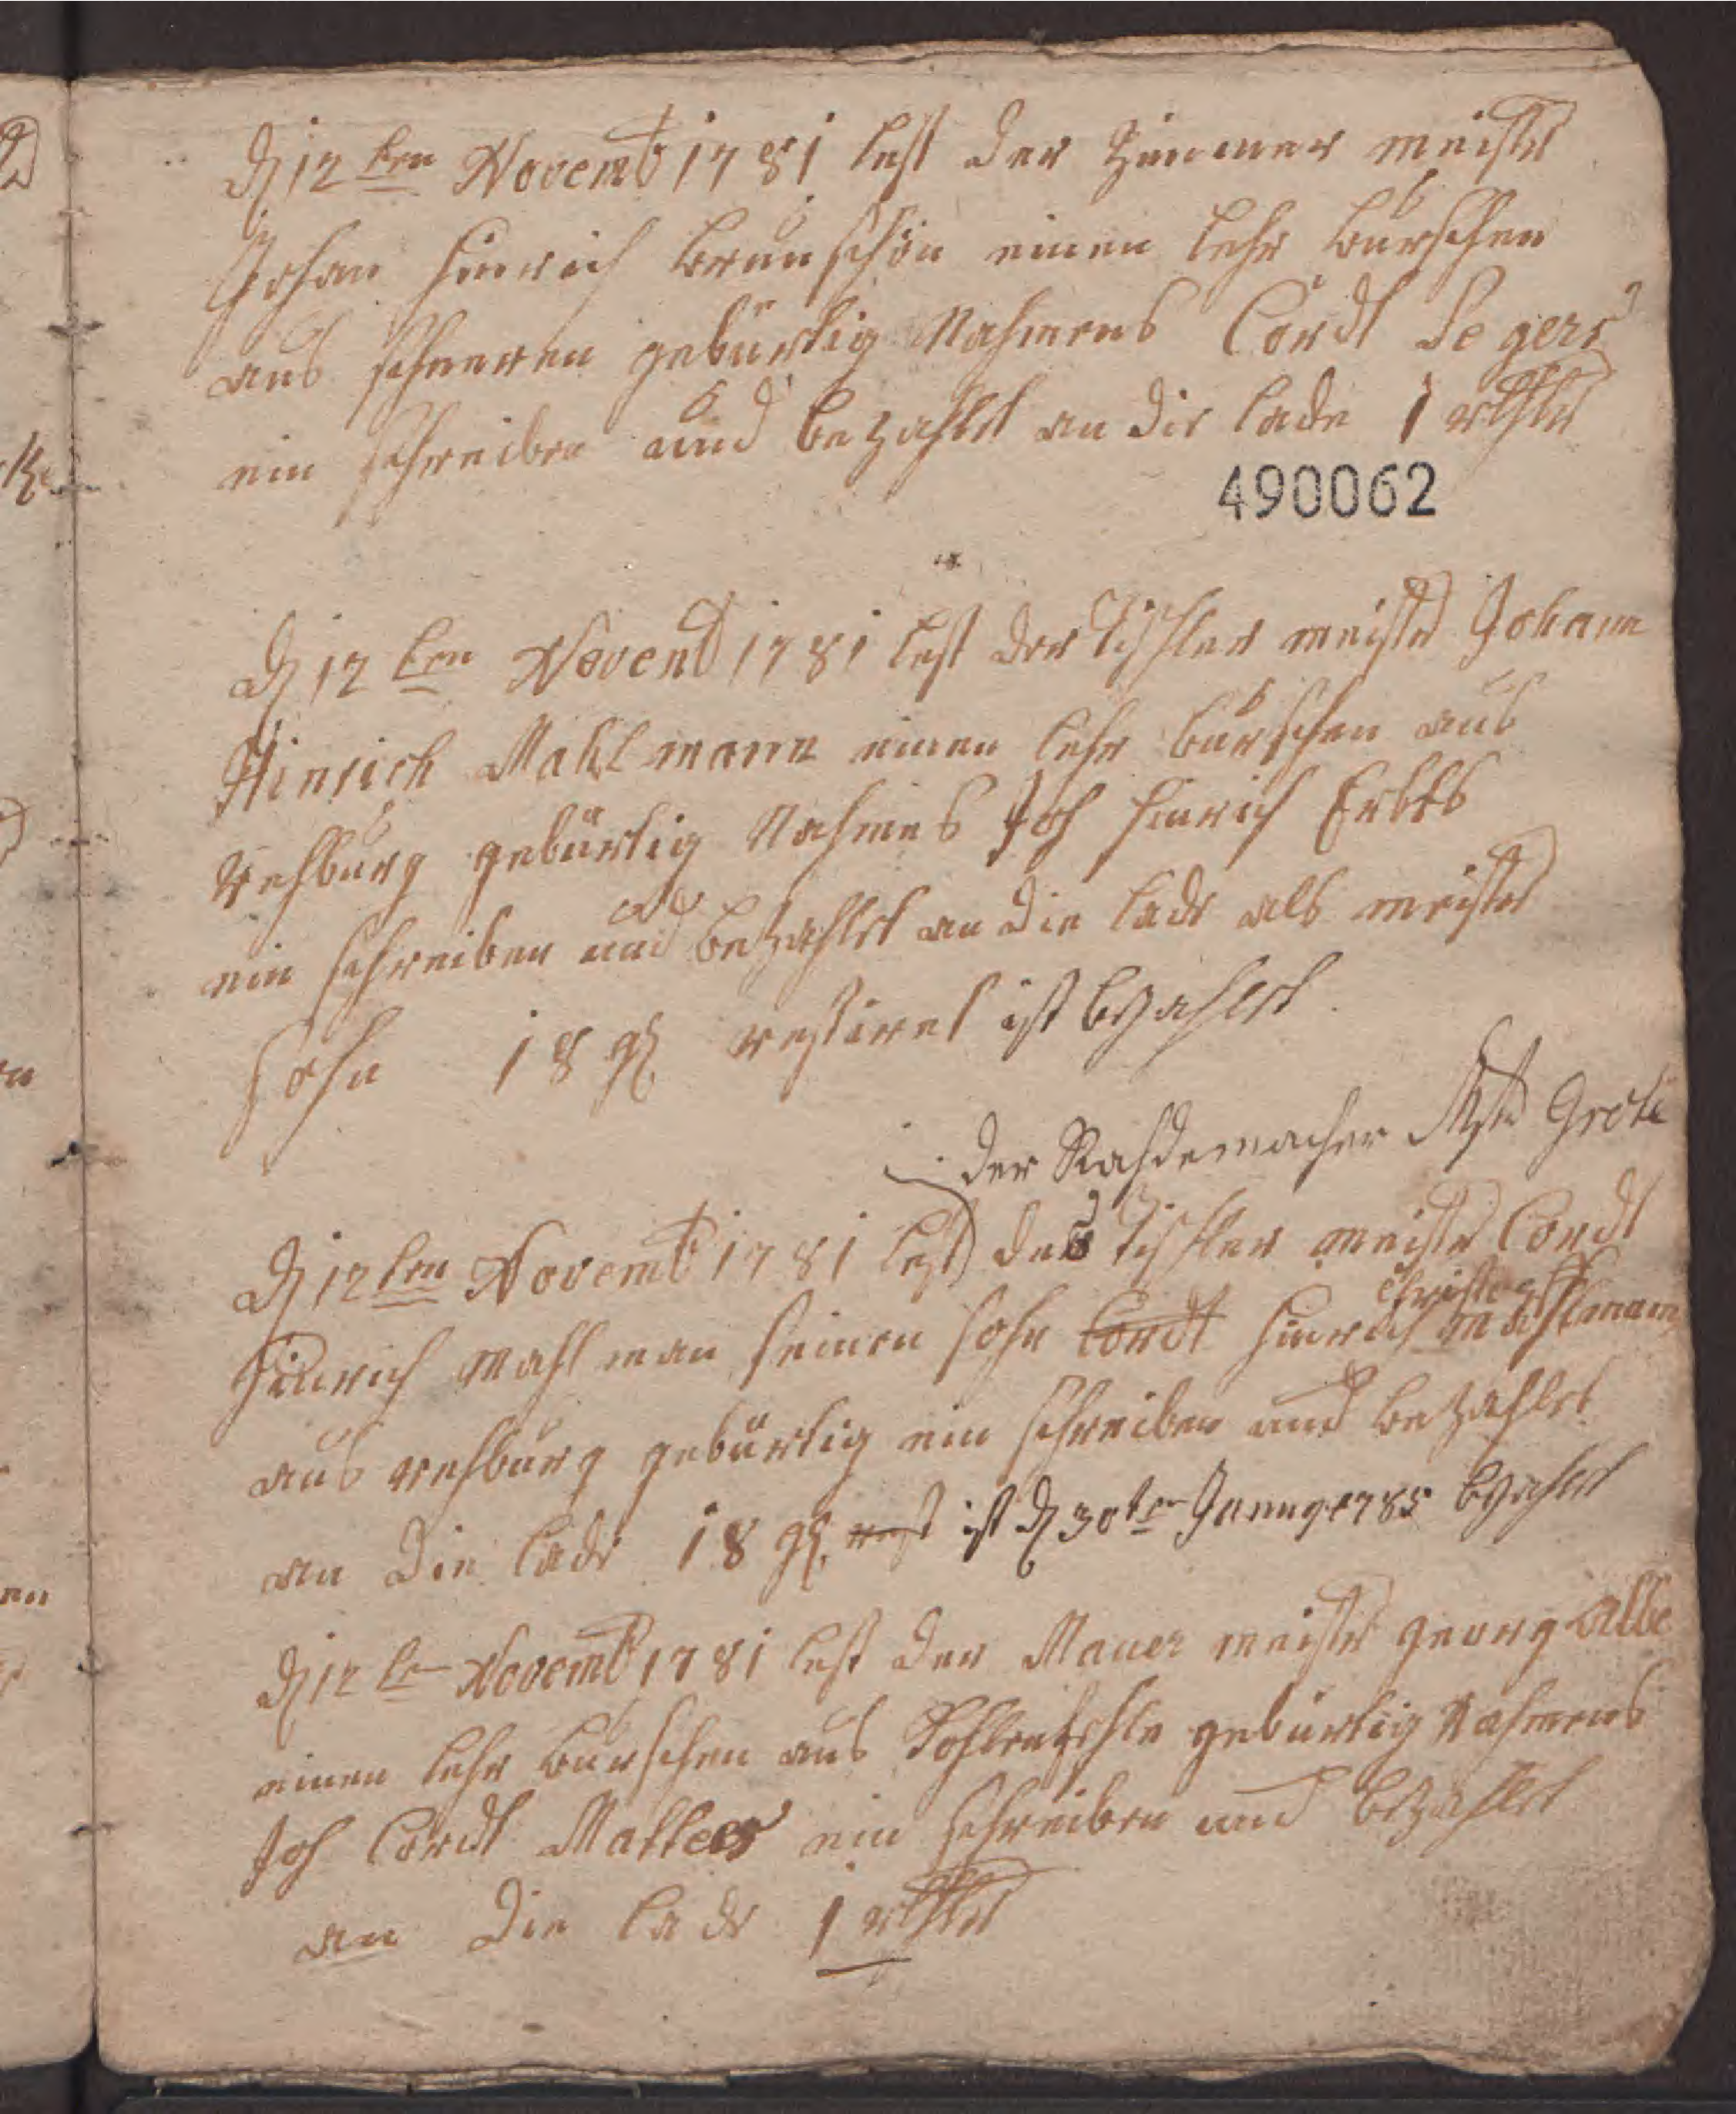 D 12ten Novemb 1781 lest der Zimmer meister
Johan Hinrich Brunschön einen lehr burschen
aus schneren gebürtig Nahmens Cordt Segers
ein schreiben und bezahlet an die lade 1 rthlr
490062
D 12ten Novemb 1781 lest der Tischler meister Johann
Hinrich Mahlmann einen lehr burschen aus
Rehburg gebürtig Nahmes Joh Hinrich
ein schreiben und bezahlet an die lade als meister
sohn 18 gl restiret ist bezahlet
der Rahdemacher Mstr Grote
D 12ten Novemb 1781 lest des Tischler meister Cordt
Christoff
Hinrich Mahlman seinen sohn Cordt Hinrich Mahlmann
aus Rehburg gebürtig ein schreiben und bezahlet
an die lade 18 gl rest ist D 30ten 1785 bezahlet
D 12ten Novemb 1781 lest der Mauer meister georg Albe
einen lehr burschen aus gebürtig Nahmens
Joh Cordt ein schreiben und bezahlet
an die lade 1 rthlr